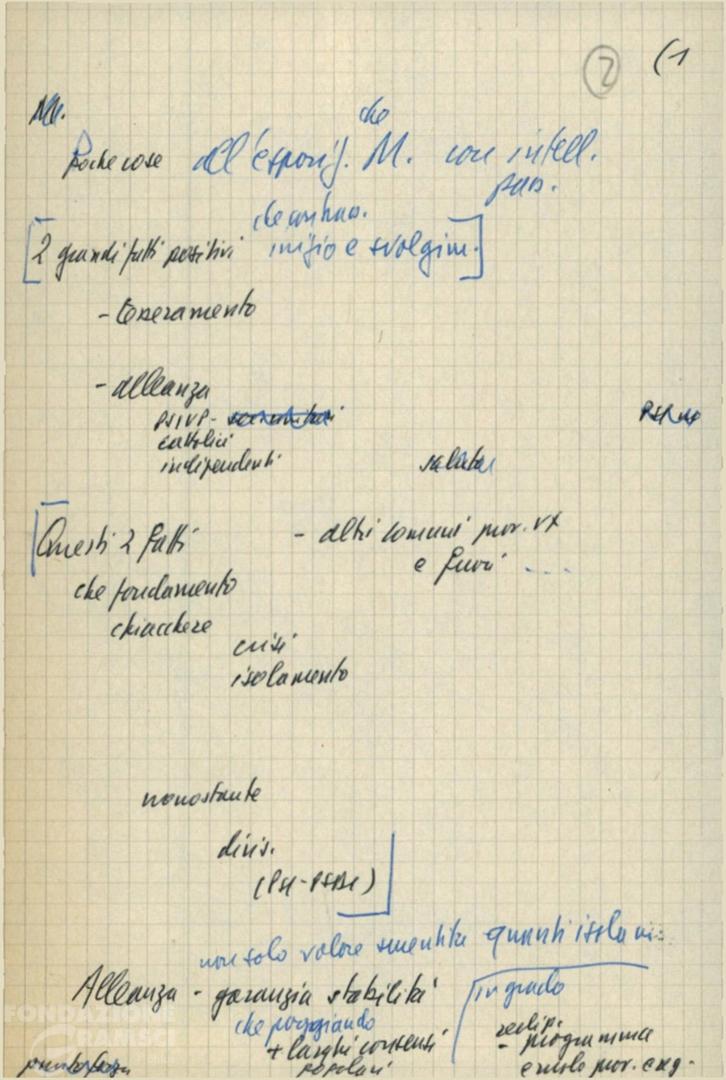 2 (1
che
poche cose all'esposiz. M. con intell.
pass.
2 grandi fatti positivi inizio e svolgim.
- tesseramento
- alleanza
PSIUP -
cattolici
indipendenti
Questi 2 fatti - altri comuni prov. VX
e fuori ...
che fondamento
chiacchere
crisi
isolamento
nonostante
divis.
(PSI-PSDI)
non solo valore smentita quanti isolam.
Alleanza - garanzia stabilità in grado
che poggiando realiz.
+ larghi consensi - programma
popolari e ruolo prov. e reg.
FONDAZIONE